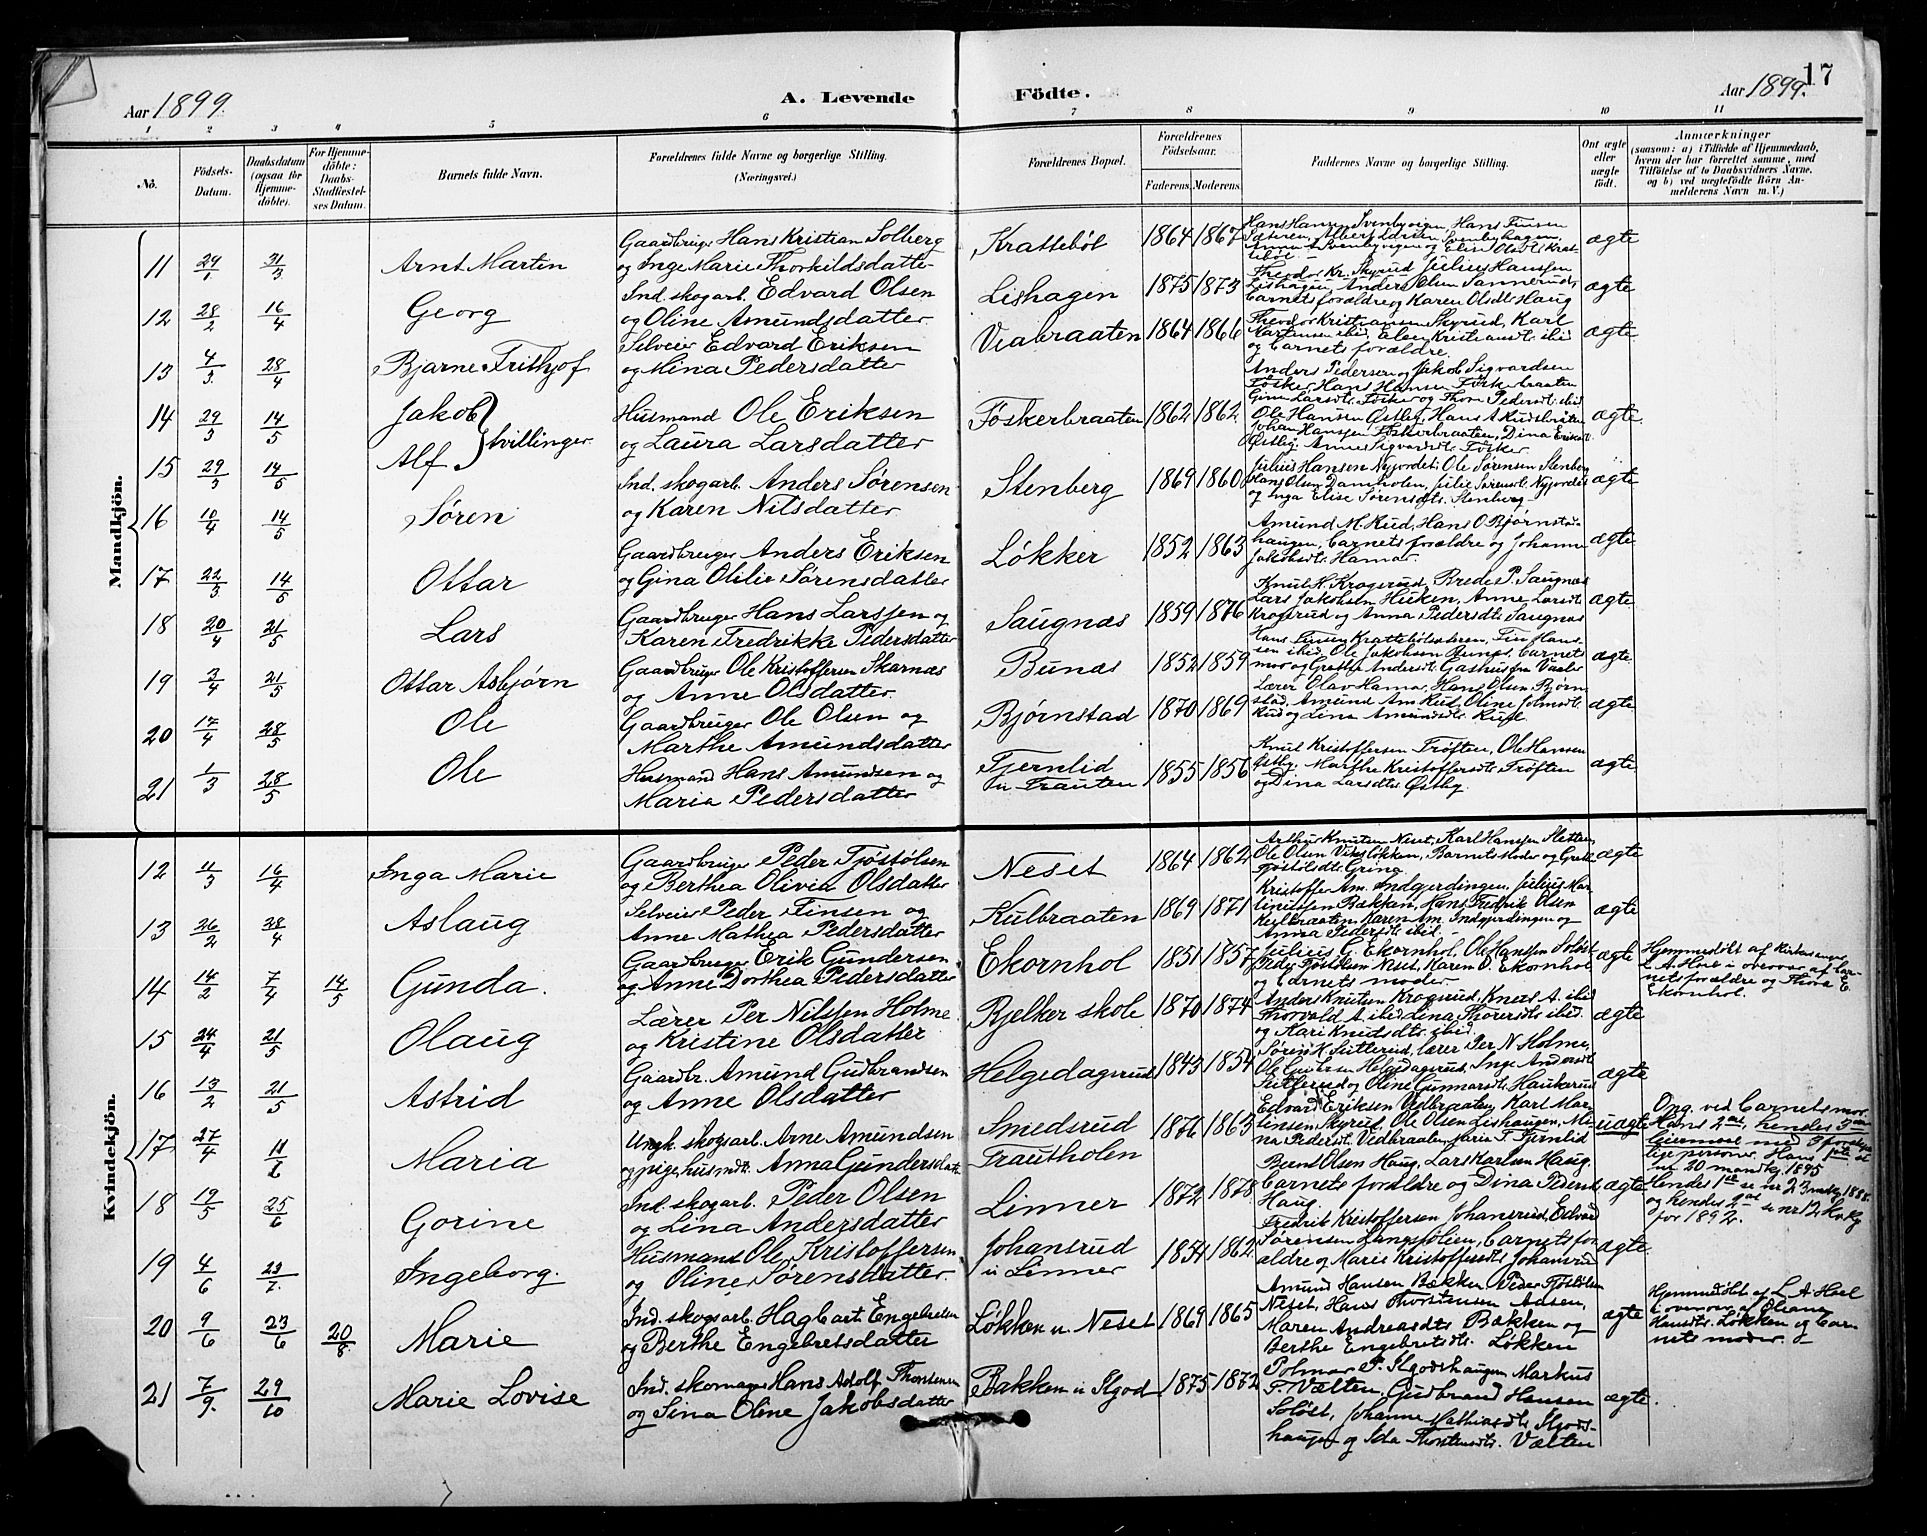 17
Aar 1899.
A. Levende
Födte.
Aar 1899.
1 2 3 4 5 6 7 8 9 10 11
No.
Födsels-
Datum.
Daabsdatum
(ogsaa for
Hjemme-
döbte).
For Hjemme-
döbte:
Daabs-
Stadfæstel-
ses Datum.
Barnets fulde Navn.
Forældrenes fulde Navne og borgerlige Stilling.
(Næringsvei.)
Forældrenes Bopæl.
Forældrenes
Födselsaar.
Faderens. Moderens.
Faddernes Navne og borgerlige Stilling.
Om ægte
eller
uægte
født.
Anmærkninger
(saasom: a) i Tilfælde af Hjemmedaab,
hvem der har forrettet samme, med
Tilföielse af to Daabsvidners Navne,
og b) ved uægtefödte Börn An-
melderens Navn m. V.)
Mandkjön.
11 29/1 31/3 Arnt Martin
Gaardbruger Hans Kristian Solberg
og Inge Marie Thorkildsdatter
Krattebøl 1864 1867
ægte
12 28/2 16/4 Georg
Ind. skogarb. Edvard Olsen
og Oline Amundsdatter
Lishagen 1875 1873
Theodor Kr. Skyrud Julius Hanssen
Lishagen, Anders Olsen Sannerud,
Barnets forældre og Karen Olsdt Haug
ægte
13 4/3 28/4 Bjarne Frithjof
Selveier Edvard Eriksen
og Mina Pedersdatter
Viabraaten 1864 1866
Theodor Kristiansen Skyrud, Karl
Martinsen ibid, Elen Kristiansdt. ibid
og Barnets forældre.
ægte
14 29/3 14/5 Jakob
15 29/3 14/5 Alf
tvillinger
Husmand Ole Eriksen
og Laura Larsdatter
Føskerbraaten 1862 1862
Anders Pedersen og Jakob Sigvardsen
Føsker Hans Hansen Føskerbraaten
Ole Hansen Østby, Hans A Rudsbraten
Johan Hanssen Føskerbraaten, Dina Eriksdt.
Østby, Anne Sigvardsdt. Føsker
ægte
16 10/4 14/5 Søren
Ind. skogarb. Anders Sørensen
og Karen Nilsdatter
Stenberg 1869 1860
Julius Hansen Nyjordet, Ole Sørensen Stenberg
Hans Olsen Damholen, Julie Sørensdt. Nyjordet
og Inga Elise Sørensdt. Stenberg
ægte
17 22/3 14/5 Ottar
Gaardbruger Anders Eriksen
og Gina Otilie Sørensdatter
Løkker 1852 1863
Amund M. Rud, Hans O Bjørnsta-
haugen, Barnets forældre og Johanne
Jakobsdt. Hamar
ægte
18 20/4 21/5 Lars
Gaardbruger Hans Larssen og
Karen Fredrikke Pedersdatter
Saugnæs 1859 1876
Knut K. Krogsrud, Brede P. Saugnæs
Lars Jakobsen Huken, Anne Larsdt.
Krogsrud og Anna Pedersdt. Saugnæs
ægte
19 3/4 21/5 Ottar Asbjørn
Gaardbruger Ole Kristoffersen Skarnæs
og Anne Olsdatter
Bunæs 1852 1859
Hans Finsen Krattebølsæteren, Fin Hans-
sen ibid, Ole Jakobsen Bunæs, Barnets
mor og Grethe Andersdt. Gashus fra Vaaler
ægte
20 17/4 28/5 Ole
Gaardbruger Ole Olsen og
Marthe Amundsdatter
Bjørnstad 1870 1869
Lærer Olav Hamar, Hans Olsen Bjørn
stad, Amund Am Rud, Oline Johnsdt.
Rud og Lina Amundsdt. Rud
ægte
21 1/3 28/5 Ole
Husmand Hans Amundsen og
Maria Pedersdatter
Tjernlid
u Frauten 1855 1856
Knut Kristoffersen Trøften, Ole Hansen
Østby, Marthe Kristoffersdt. Trøften
og Dina Larsdt. Østby.
ægte
Kvindekjön.
12 11/3 16/4 Inga Marie
Gaardbruger Peder Tjøstølsen
og Berthea Olivia Olsdatter
Neset 1864 1862
Arthur Knutsen Neset, Karl Hanssen Sletten,
Ole Olsen Viksløkken, Barnets Moder og Grethe
Tjøstølsdt. Grina
ægte
13 26/2 28/4 Aslaug
Selveier Peder Finsen og
Anne Mathea Pedersdatter
Kulbraaten 1869 1871
Kristoffer Am. Indgjerdingen, Julius Mar
tinussen Bækken, Hans Fredrik Olsen
Kulbraaten, Karen Am. Indgjerdingen og
Anna Pedersdt. ibid.
ægte
14 14/2 7/4 14/5 Gunda.
Gaardbruger Erik Gundersen
og Anne Dorthea Pedersdatter
Ekornhol 1851 1857
Julius G. Ekornhol, Ole Hanssen Soløst
Peder Tjøstølsen Neset, Karen O. Ekornhol
og Barnets moder.
ægte
Hjemmedøbt af Kirkesanger
L. A. Hoel i overvær af Bar-
nets forældre og Thora E.
Ekornhol.
15 24/4 21/5 Olaug
Lærer Per Nilssen Holme
og Kristine Olsdatter
Bjelker skole 1870 1874
Anders Knutsen Krogsrud, Knut A. ibid
Thorvald A. ibid, Lina Thoresdt. ibid.
og Kari Knudsdt. ibid.
ægte
16 13/2 21/5 Astrid
Gaardbr. Amund Gudbrandsen
og Anne Olsdatter
Helgedagsrud 1843 1854
Søren H. Sutterud, lærer Per N Holme,
Ole Gulbrsen Helgedagsrud, Inge Andersdt.
Sutterud og Oline Gunnarsdt. Haukerud
ægte
17 27/4 11/6 Maria
Ungk. skogsarb. Arne Amundsen
og pige, husmdt. Anna Gundersdatter
Smedsrud
Frautholen 1876 1863
Edvard Eriksen Vedbraaten, Karl Mar
tinsen Skyrud, Ole Olsen Lishaugen, Mi
na Pedersdt. Vedbraaten, Maria T. Tjernlid
uægte
Ong. ved Barnets mor.
Hans 2den, hendes 3die
leiermaal med 3 forskjel
lige personer. Hans 1ste se
nr 20 mandkj. 1895
Hendes 1ste se nr 23 mdkj. 1888
og hendes 2det se nr 12 Kvkj
for 1892.
18 19/5 25/6 Gorine
Ind. skogsarb. Peder Olsen
og Lina Andersdatter
Linner 1872 1878
Bernt Olsen Haug, Lars Karlsen Haug,
Barnets forældre og Dina Pedersdt
Haug.
ægte
19 4/6 23/7. Ingeborg.
Husmand Ole Kristoffersen
og Oline Sørensdatter
Johansrud
u Linner 1854 1862
Fredrik Kristoffersen Johansrud, Edvard
Sørensen Langsjølien, Barnets for
ældre og Marie Kristoffersdt. Johansrud
ægte
20 9/6 23/6 20/8 Marie
Ind. skogsarb. Hagbart Engebretsen
og Berthe Engebretsdatter
Løkken u. Neset 1869 1865
Amund Hansen Bækken, Peder Tjøstølsen
Neset, Hans Thorstensen Aasen,
Maren Andreasdt. Bækken og
Berthe Engebretsdt. Løkken
ægte
Hjemmedøbt af L A Hoel
i overvær af Oliane
Hansdt. Løkken og Bar-
nets moder.
21 7/9. 29/10 Marie Lovise
Ind. skomager Hans Adolf Thorstensen
og Sina Oline Jakobsdatter
Bakken u Skjod 1875 1872
Polmar P. Skjodshaugen Markus
F. Vælten, Gudbrand Hansen
Soløst, Johanne Mathiasdt. Skjods-
haugen og Ida Thorstensdt. Vælten
ægte.